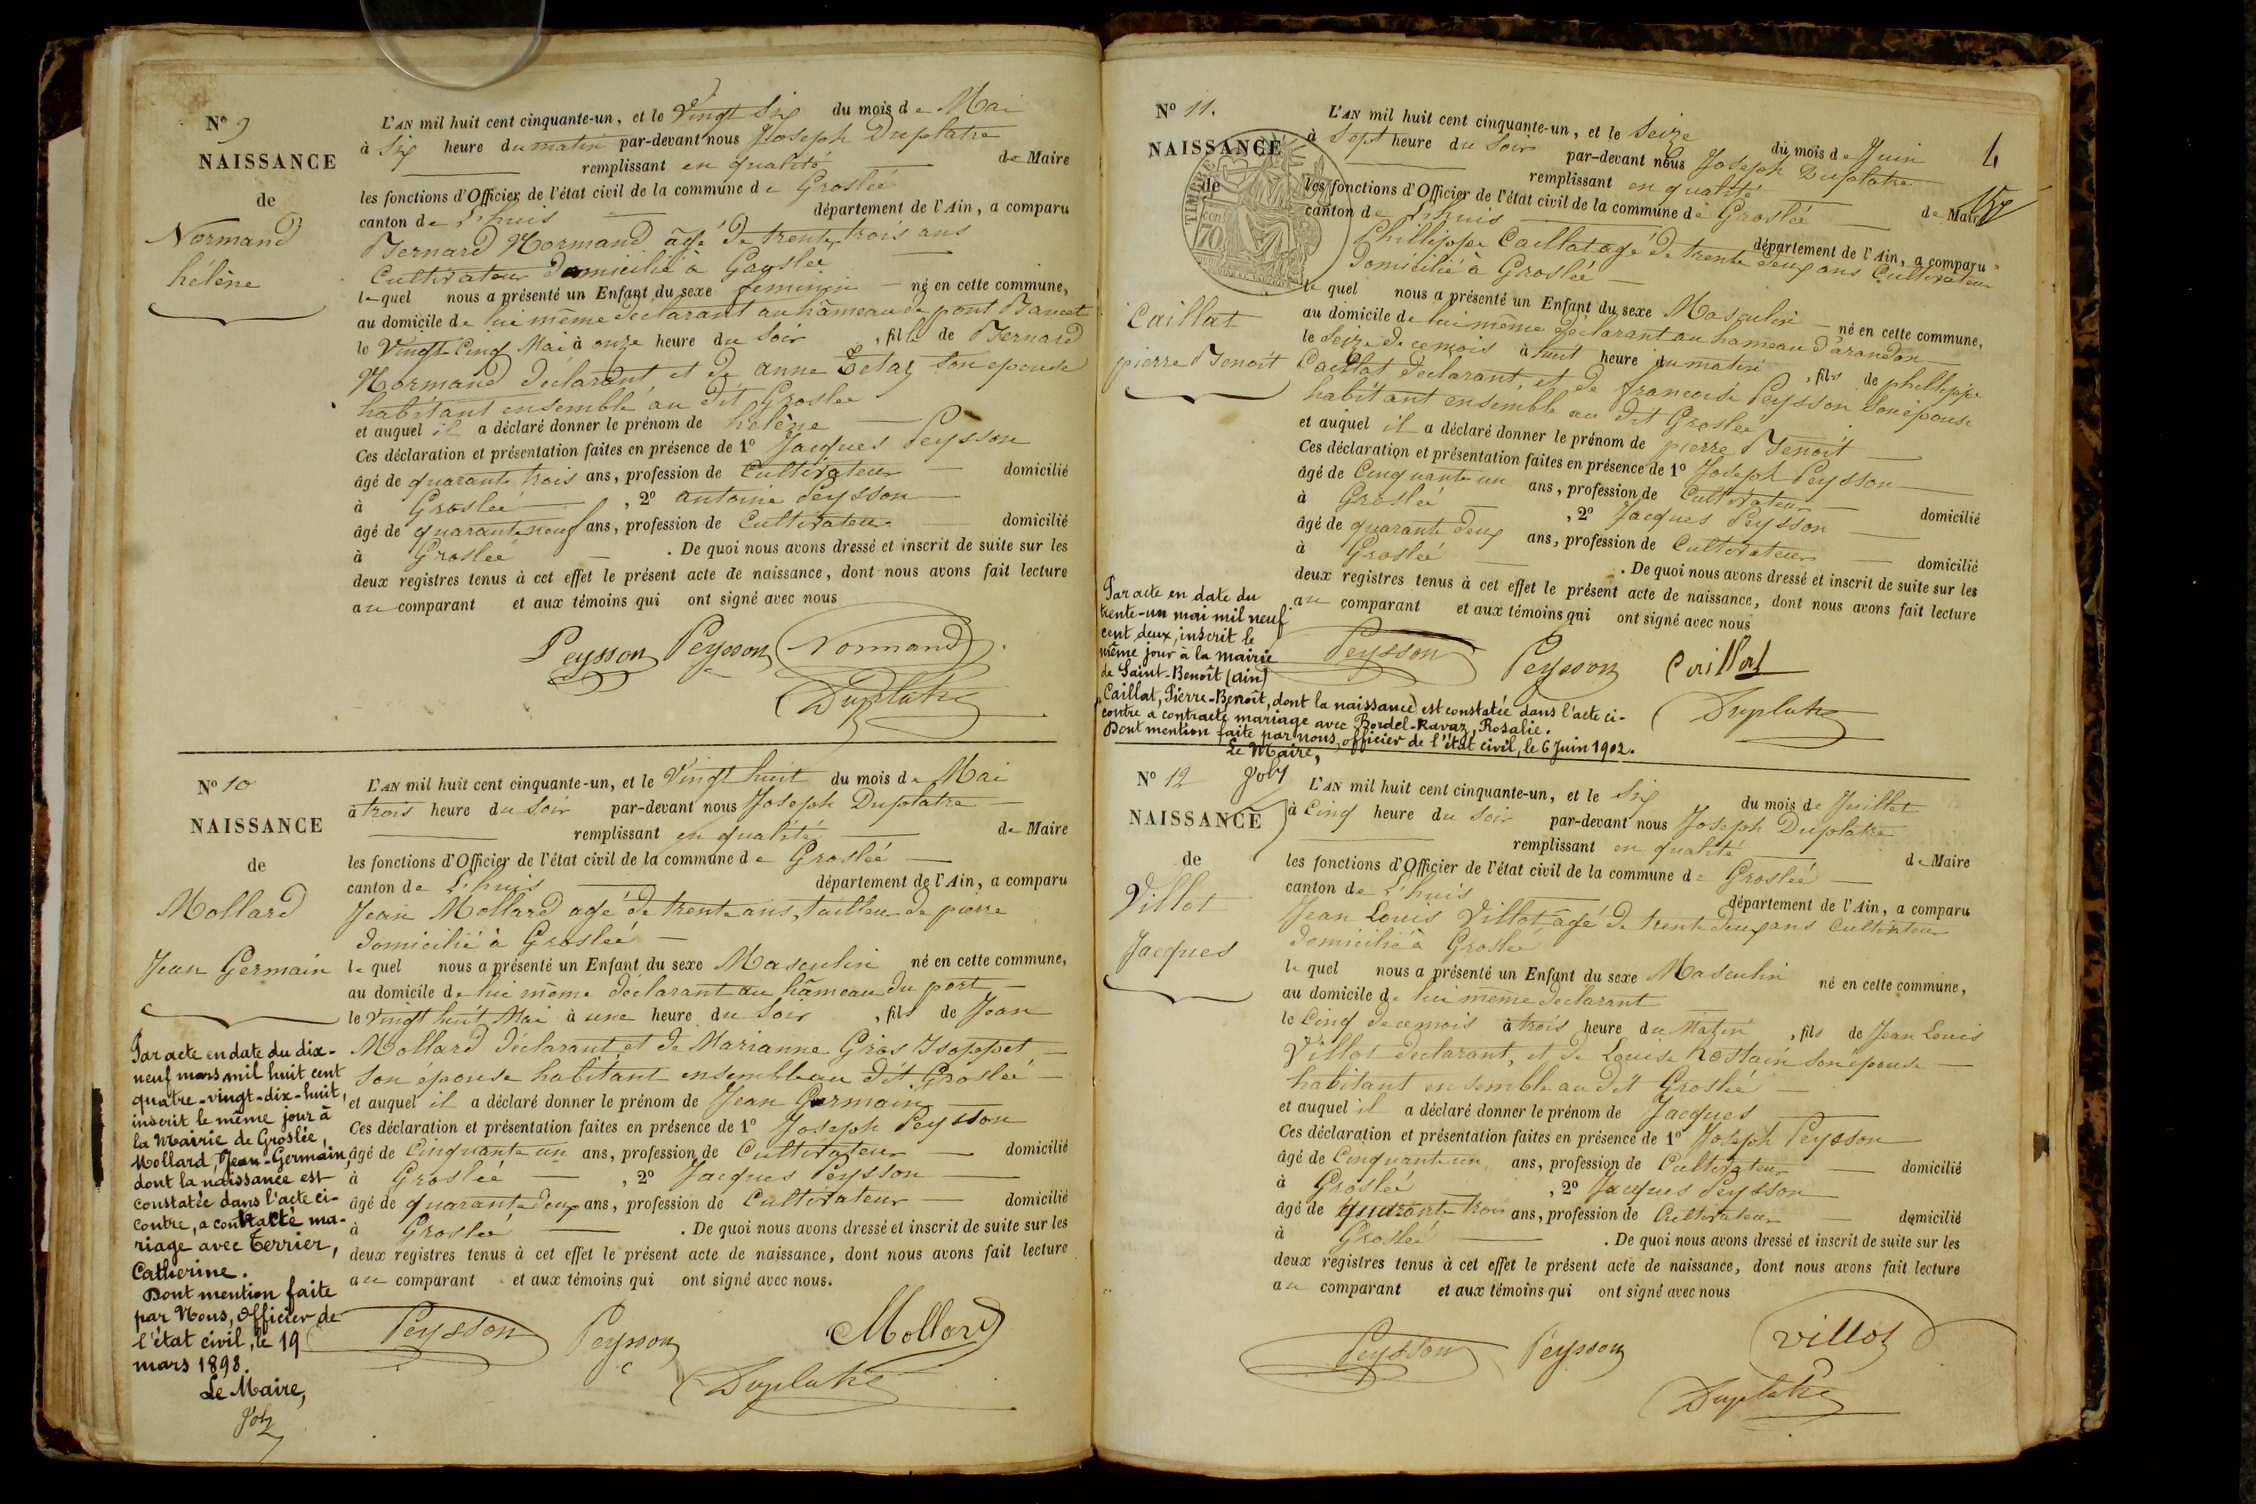 Nº 9
NAISSANCE
de
Normand
hélène
L'AN mil huit cent cinquante-un, et le Vingt Six du mois de Mai
à Six heure du matin par-devant nous Joseph Duplatre
remplissant en qualité de Maire
les fonctions d'Officier de l'état civil de la commune de Groslée
canton de L'huis département de l'Ain, a comparu
Bernard Normand âgé de trente trois ans
Cultivateur domicilié à Groslée
lequel nous a présenté un Enfant du sexe feminin né en cette commune,
au domicile de lui même déclarant au hâmeau de pont Bancet
le Vingt Cinq Mai à onze heure du Soir, fille de Bernard
Normand déclarant et de anne son epouse
habitant ensemble au dit Groslée
et auquel il a déclaré donner le prénom de hélène
Ces déclaration et présentation faites en présence de 1º Jacques Peysson
âgé de quarante trois ans, profession de Cultivateur domicilié
à Groslée, 2º antoine Peysson
âgé de quarante neuf ans, profession de Cultivateur domicilié
à Groslée. De quoi nous avons dressé et inscrit de suite sur les
deux registres tenus à cet effet le présent acte de naissance, dont nous avons fait lecture
au comparant et aux témoins qui ont signé avec nous
Peysson Peysson Normand
Duplatre
Nº 10
NAISSANCE
de
Mollard
Jean Germain
L'AN mil huit cent cinquante-un, et le Vingt huit du mois de Mai
à trois heure du Soir par-devant nous Joseph Duplatre
remplissant en qualité de Maire
les fonctions d'Officier de l'état civil de la commune de Groslée
canton de L'huis département de l'Ain, a comparu
Jean Mollard agé de trente ans, tailleur de pierre
domicilié à Groslée
lequel nous a présenté un Enfant du sexe Masculin né en cette commune,
au domicile de lui même déclarant au hâmeau du port
le Vingt huit Mai à une heure du Soir, fils de Jean
Mollard déclarant et de Marianne Gros Isoppet
Son épouse habitant ensemble au dit Groslée
et auquel il a déclaré donner le prénom de Jean Germain
Ces déclaration et présentation faites en présence de 1º Joseph Peysson
âgé de Cinquante un ans, profession de Cultivateur domicilié
à Groslée, 2º Jacques Peysson
âgé de quarante deux ans, profession de Cultivateur domicilié
à Groslée. De quoi nous avons dressé et inscrit de suite sur les
deux registres tenus à cet effet le présent acte de naissance, dont nous avons fait lecture
au comparant et aux témoins qui ont signé avec nous.
Peysson Peysson Mollard
Duplatre
Par acte en date du dix-
neuf mars mil huit cent
quatre-vingt-dix-huit,
inscrit le même jour à
la Mairie de Groslée,
Mollard, Jean-Germain,
dont la naissance est
constatée dans l'acte ci-
contre, a contracté ma-
riage avec Terrier,
Catherine.
Dont mention faite
par Nous, Officier de
l'état civil, le 19
mars 1898.
Le Maire,
Joly
Nº 11.
NAISSANCE
de
Caillat
pierre Benoit
4
TIMBRE
70
L'AN mil huit cent cinquante-un, et le Seize du mois de Juin
à Sept heure du Soir par-devant nous Joseph Duplatre
remplissant en qualité de Maire
les fonctions d'Officier de l'état civil de la commune de Groslée
canton de L'huis département de l'Ain, a comparu
Phillippe Caillat agé de trente deux ans Cultivateur
domicilié à Groslée
lequel nous a présenté un Enfant du sexe Masculin né en cette commune,
au domicile de lui même déclarant au hameau d'arandon
le Seize de ce mois à huit heure du matin, fils de phillippe
Caillat declarant, et de francoise Peysson Son épouse
habitant ensemble au dit Groslée
et auquel il a déclaré donner le prénom de pierre Benoit
Ces déclaration et présentation faites en présence de 1º Joseph Peysson
âgé de Cinquante un ans, profession de Cultivateur domicilié
à Groslée, 2º Jacques Peysson
âgé de quarante deux ans, profession de Cultivateur domicilié
à Groslée. De quoi nous avons dressé et inscrit de suite sur les
deux registres tenus à cet effet le présent acte de naissance, dont nous avons fait lecture
au comparant et aux témoins qui ont signé avec nous
Peysson Peysson Caillat
Duplatre
Par acte en date du
trente-un mai mil neuf
cent deux, inscrit le
même jour à la mairie
de Saint-Benoît (Ain)
Caillat, Pierre-Benoît, dont la naissance est constatée dans l'acte ci-
contre a contracté mariage avec Bordel-Ravaz, Rosalie.
Dont mention faite par nous, officier de l'état civil, le 6 Juin 1902.
Le Maire,
Joly
Nº 12
NAISSANCE
de
Villot
Jacques
L'AN mil huit cent cinquante-un, et le Six du mois de Juillet
à Cinq heure du Soir par-devant nous Joseph Duplatre
remplissant en qualité de Maire
les fonctions d'Officier de l'état civil de la commune de Groslée
canton de L'huis département de l'Ain, a comparu
Jean Louis Villot âgé de trente deux ans Cultivateur
domicilié à Groslée
lequel nous a présenté un Enfant du sexe Masculin né en cette commune,
au domicile de lui même déclarant
le Cinq de ce mois à trois heure du Matin, fils de Jean Louis
Villot declarant, et de Louise Rostain Son épouse
habitant ensemble au dit Groslée
et auquel il a déclaré donner le prénom de Jacques
Ces déclaration et présentation faites en présence de 1º Joseph Peysson
âgé de Cinquante un ans, profession de Cultivateur domicilié
à Groslée, 2º Jacques Peysson
âgé de quarante trois ans, profession de Cultivateur domicilié
à Groslée. De quoi nous avons dressé et inscrit de suite sur les
deux registres tenus à cet effet le présent acte de naissance, dont nous avons fait lecture
au comparant et aux témoins qui ont signé avec nous
Peysson Peysson Villot
Duplatre